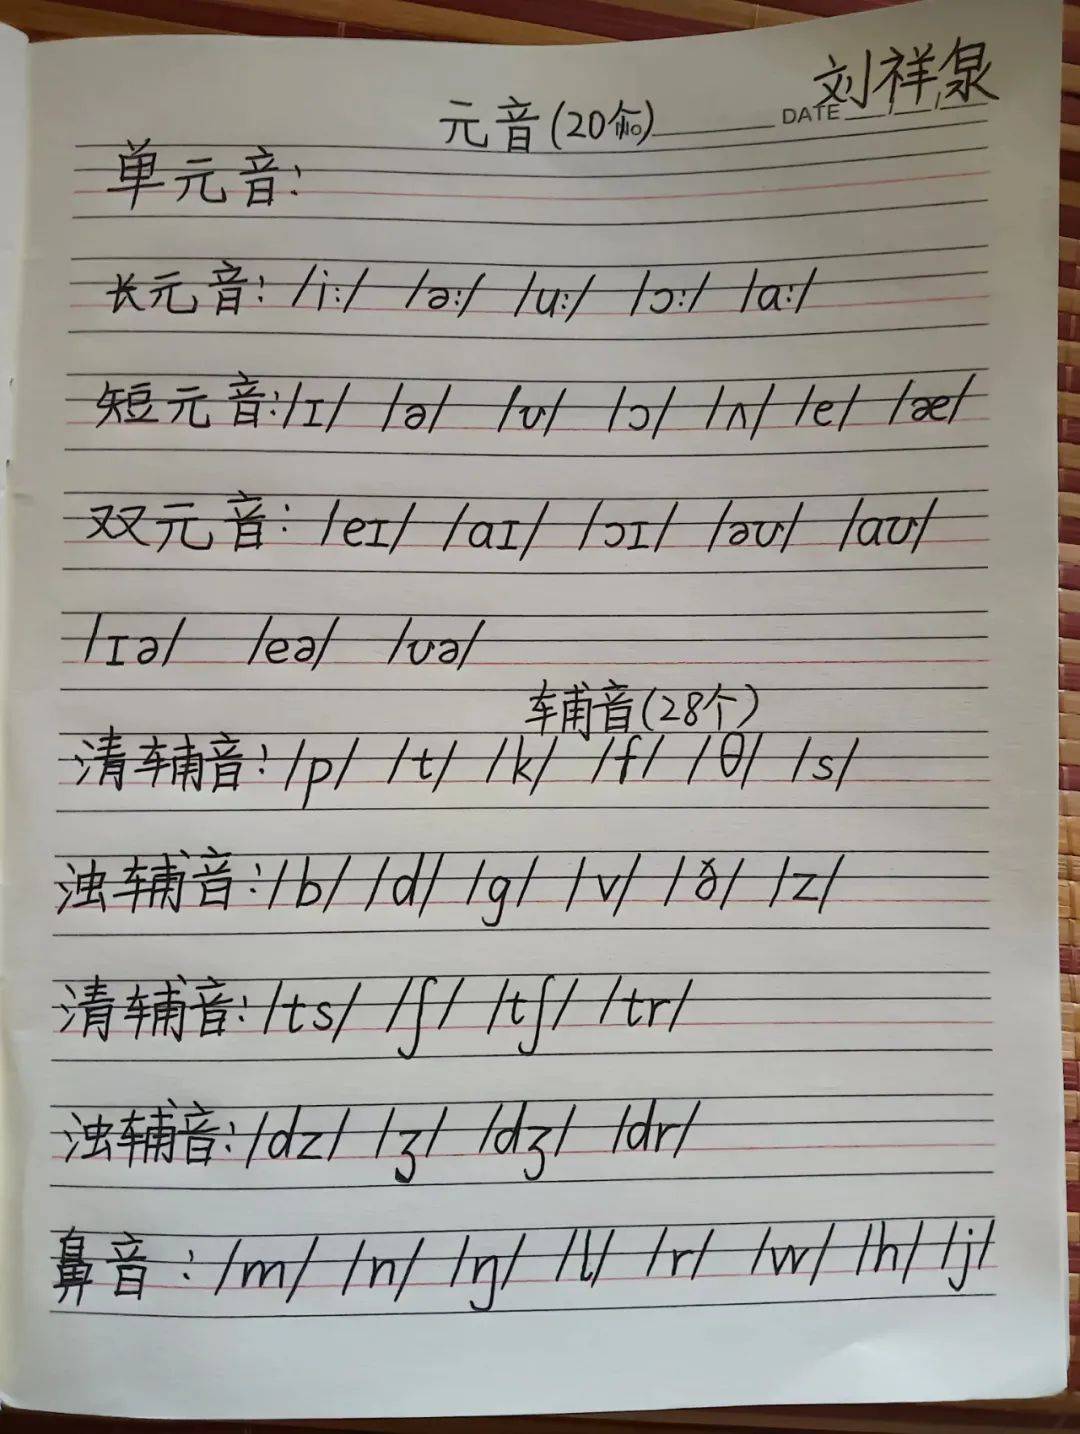 刘祥泉
元音(20个) DATE
单元音:
长元音: /i:/ /ə:/ /u:/ /ɔ:/ /ɑ:/
短元音: /ɪ/ /ə/ /ʊ/ /ɔ/ /ʌ/ /e/ /æ/
双元音: /eɪ/ /aɪ/ /ɔɪ/ /əʊ/ /aʊ/
/ɪə/ /eə/ /ʊə/
辅音(28个)
清辅音: /p/ /t/ /k/ /f/ /θ/ /s/
浊辅音: /b/ /d/ /g/ /v/ /ð/ /z/
清辅音: /ts/ /ʃ/ /tʃ/ /tr/
浊辅音: /dz/ /ʒ/ /dʒ/ /dr/
鼻音: /m/ /n/ /ŋ/ /l/ /r/ /w/ /h/ /j/